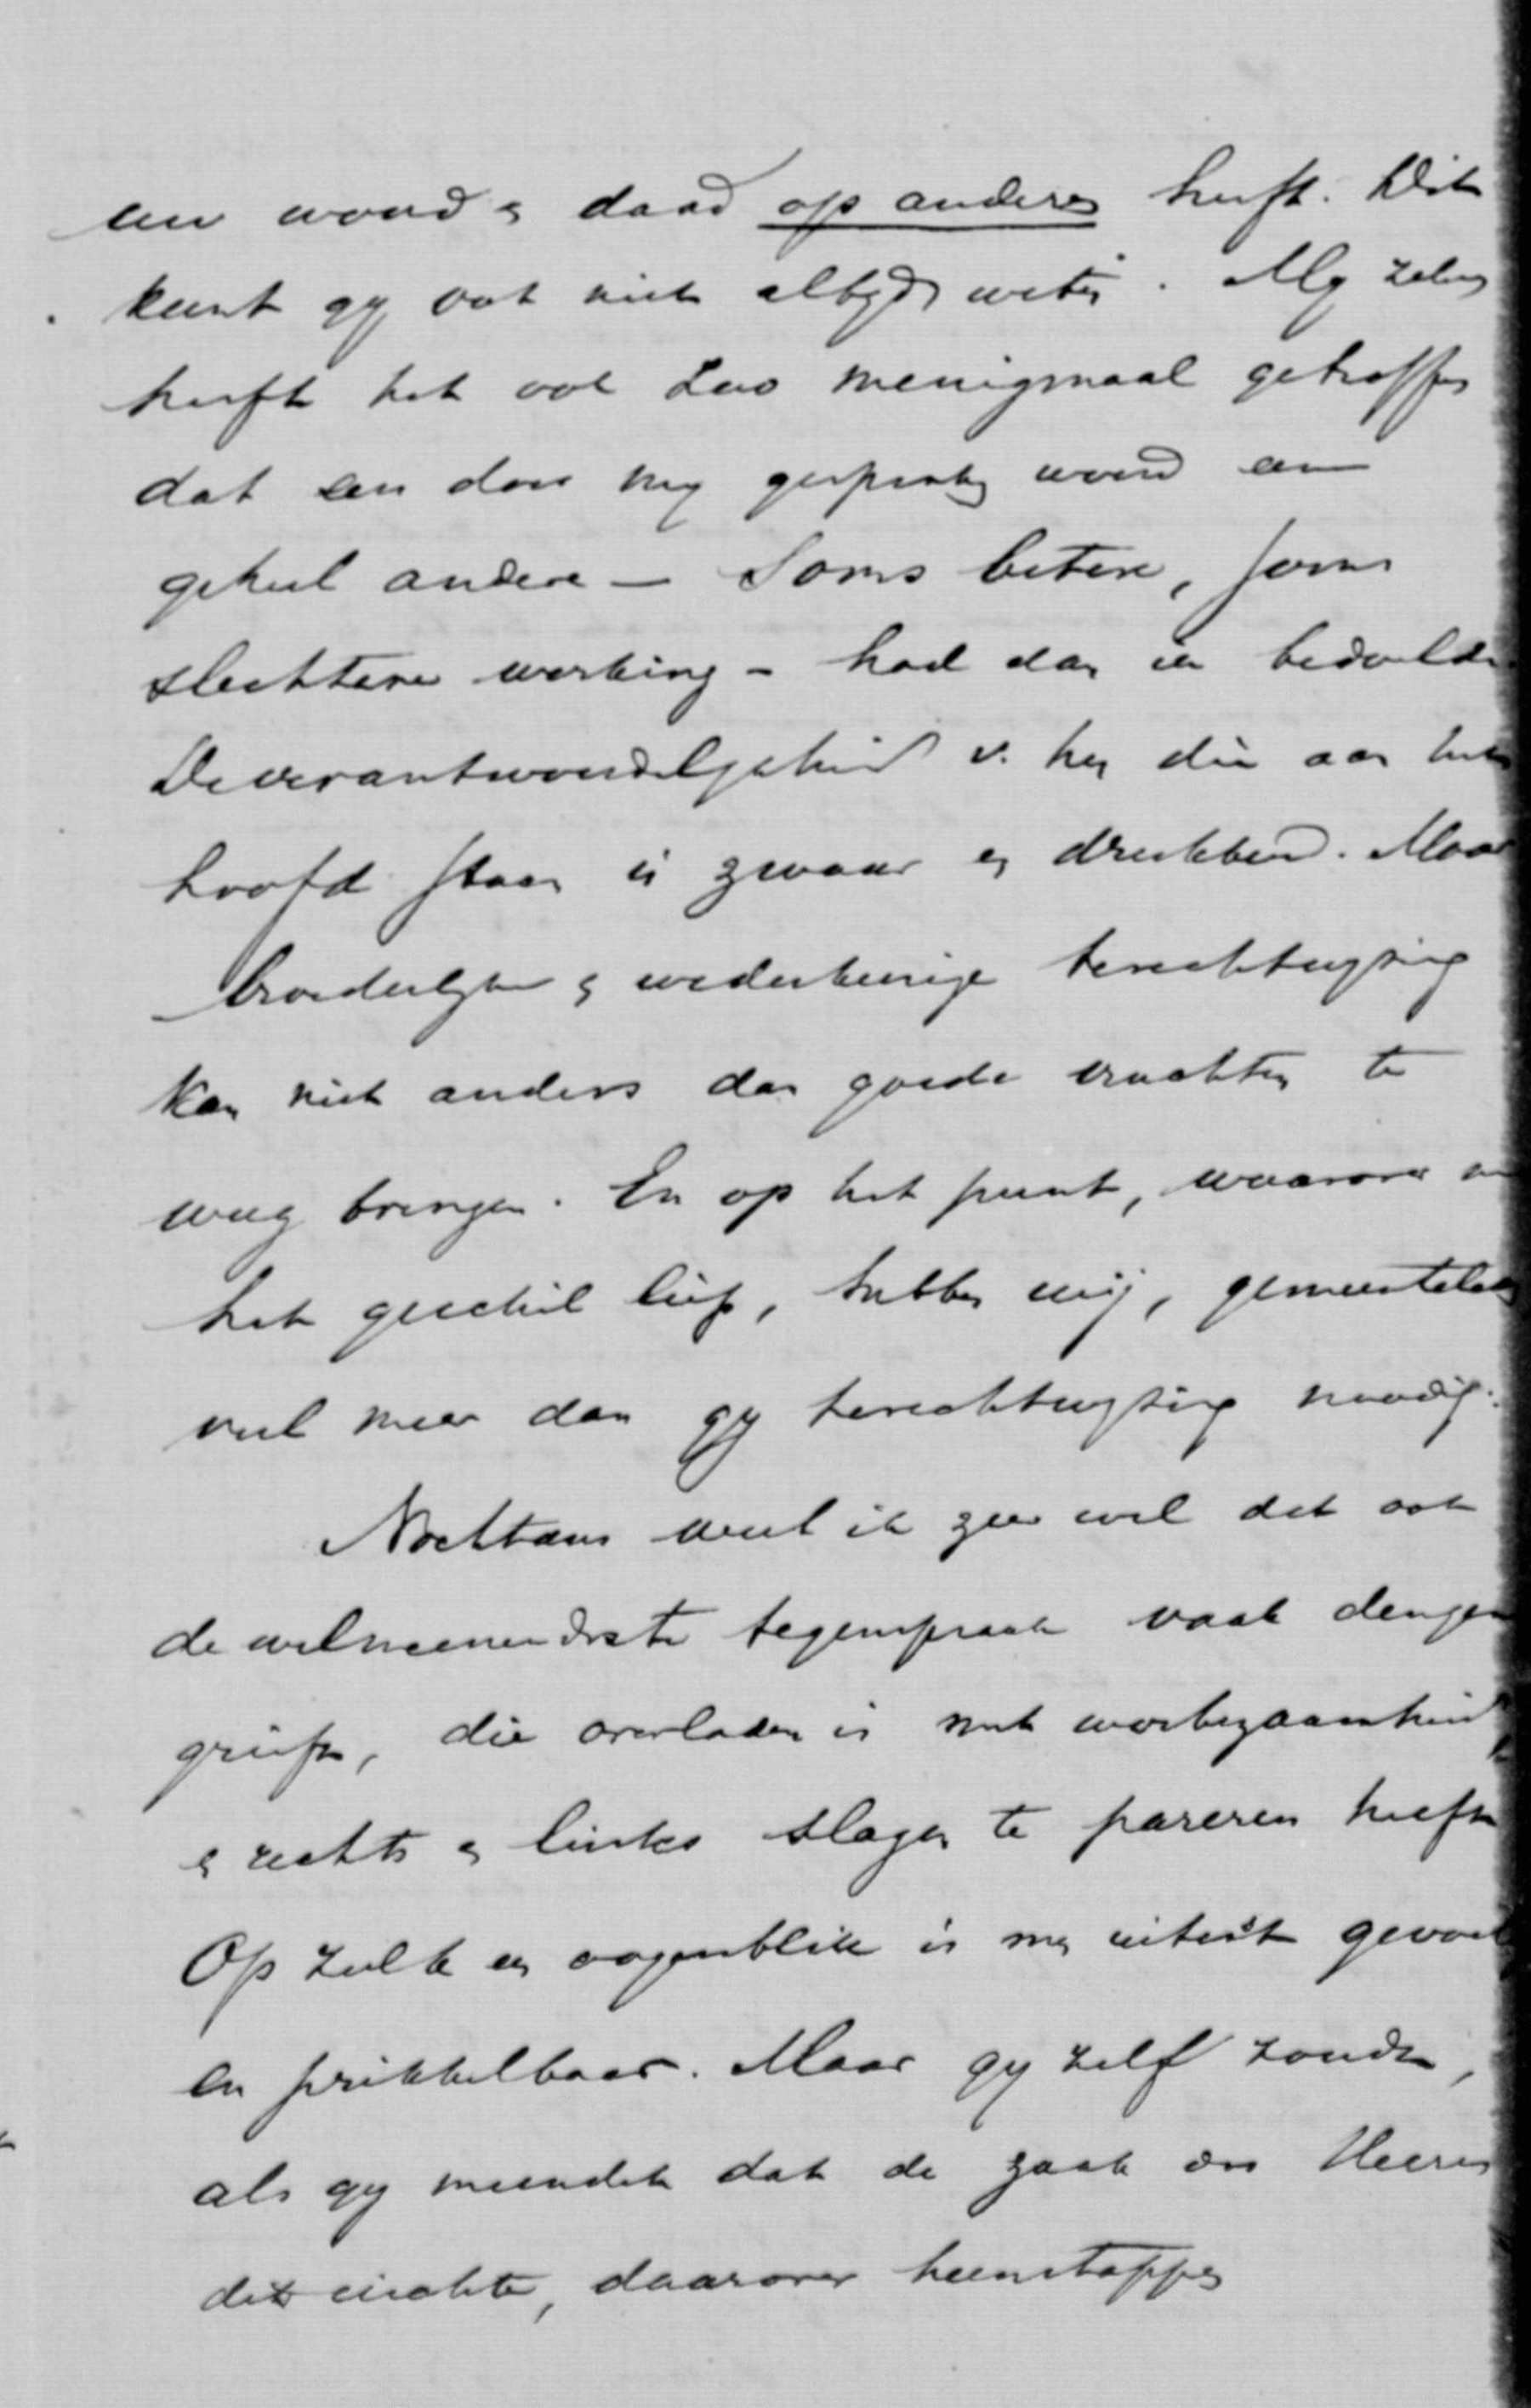 uw woord & daad op anderen heeft. Dit
kunt gy ook niet altyd weten. My zelven
heeft het ook zoo menigmaal getroffen
dat een door my gesproken woord een
geheel andere – soms betere, soms
slechtere werking – had dan ik bedoelde.
De verantwoordelykheid v. hen die aan het
hoofd staan is zwaar en drukkend. Maar
broederlyke & wederkeerige terechtwyzing
kan niet anders dan goede vruchten te
weeg brengen. En op het punt, waarover
het geschil liep, hebben wij, gemeenteleden
veel meer dan gy terechtwyzing noodig.
Nochtans weet ik zeer wel dat ook
de welmeenendste tegenspraak vaak dengene
grieft, die overladen is met werkzaamheid
& rechts & links slagen te pareren heeft
Op zulk een oogenblik is men uiterst gevoelig
en prikkelbaar. Maar gy zelf zoudt,
als gy meendet dat de zaak des Heeren
dit eischte, daarover heenstappen